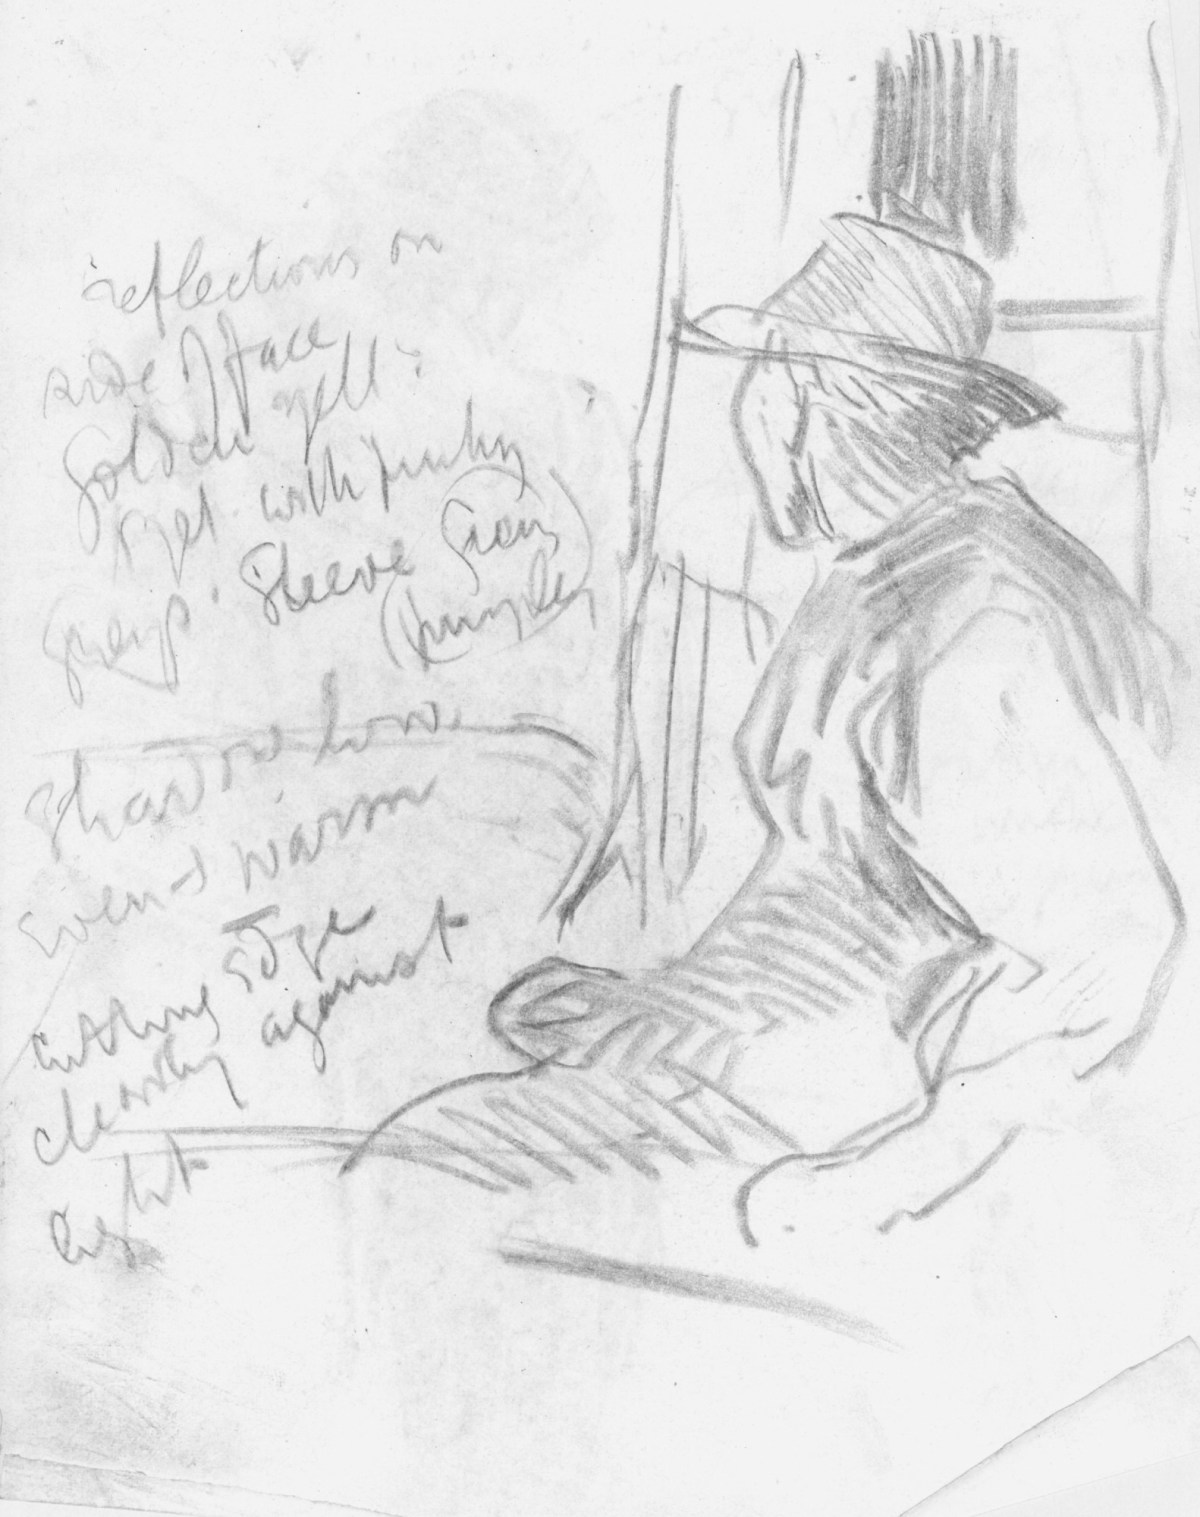 reflections on
side of face
golden yell:
yet with pinky
greys. Sleeve Grey
(purpley)
Shadow low
even & warm
cutting edge
clearly against
light